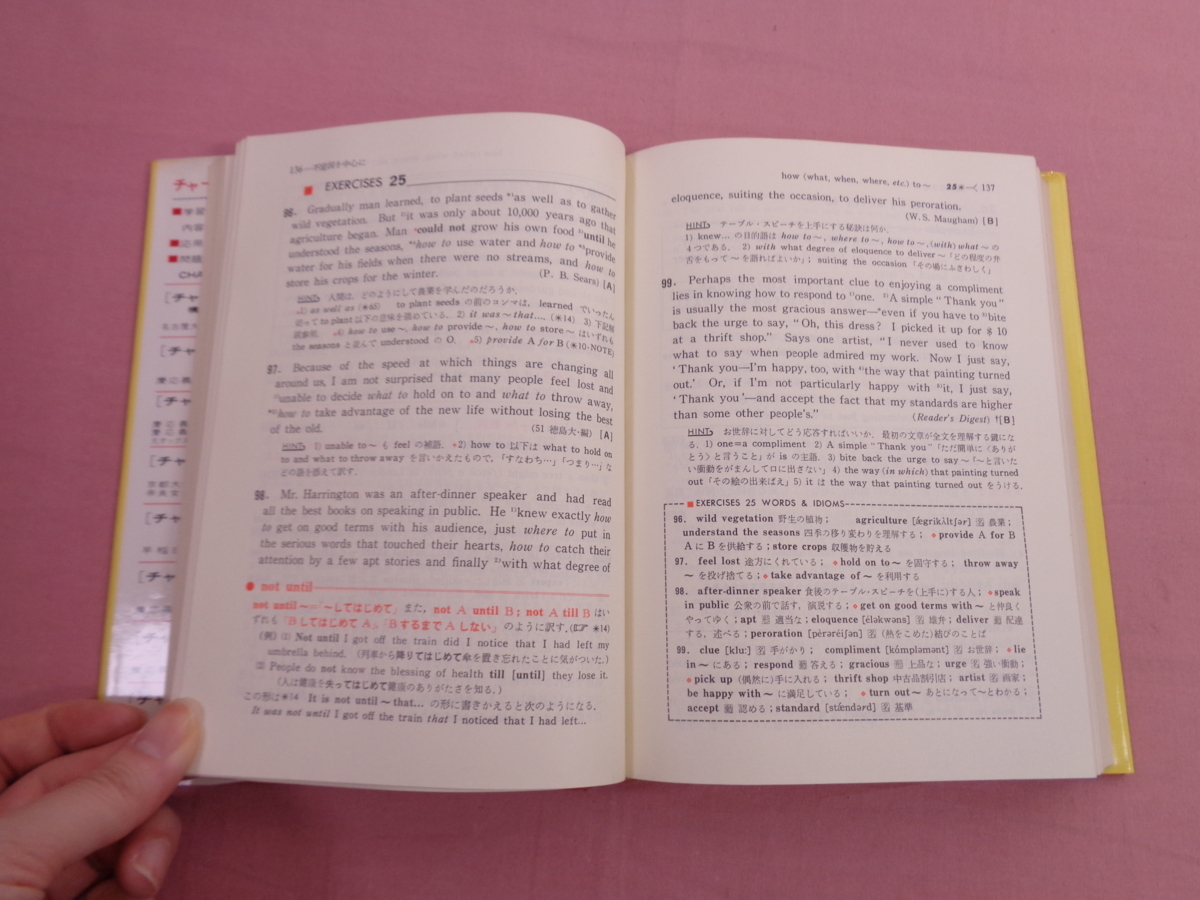 チャー
■学習
内容
■応用
■問題
CHA
[チャ
名古屋大
[チャ
[チャ
[チャ
[チャ
[チャ
136—不定詞を中心に
■ EXERCISES 25
96. Gradually man learned, to plant seeds *1)as well as to gather
wild vegetation. But 2)it was only about 10,000 years ago that
agriculture began. Man could not grow his own food 3)until he
understood the seasons, *4)how to use water and how to *5)provide
water for his fields when there were no streams, and how to
store his crops for the winter. (P. B. Sears) [A]
HINTS 人間は、どのようにして農業を学んだのだろうか。
1) as well as (＊65) to plant seeds の前のコンマは, learned でいったん
切って to plant 以下の意味を強めている. 2) it was ～ that.... (＊14) 3) 下記解
説参照. 4) how to use ～, how to provide ～, how to store ～ はいずれも
the seasons と並んで understood の O. 5) provide A for B (＊10-NOTE)
97. Because of the speed at which things are changing all
around us, I am not surprised that many people feel lost and
1)unable to decide what to hold on to and what to throw away,
*2)how to take advantage of the new life without losing the best
of the old. (51 徳島大・編) [A]
HINTS 1) unable to ～ も feel の補語. 2) how to 以下は what to hold on
to and what to throw away を言いかえたもので,「すなわち…」「つまり…」な
どの語を添えて訳す.
98. Mr. Harrington was an after-dinner speaker and had read
all the best books on speaking in public. He 1)knew exactly how
to get on good terms with his audience, just where to put in
the serious words that touched their hearts, how to catch their
attention by a few apt stories and finally 2)with what degree of
● not until
not until ～=「～してはじめて」また, not A until B; not A till B はい
ずれも「BしてはじめてA」,「BするまでAしない」のように訳す. (☞ ＊14)
(例) (1) Not until I got off the train did I notice that I had left my
umbrella behind. (列車から降りてはじめて傘を置き忘れたことに気がついた.)
(2) People do not know the blessing of health till [until] they lose it.
(人は健康を失ってはじめて健康のありがたさを知る.)
この形は＊14 It is not until ～ that... の形に書きかえると次のようになる.
It was not until I got off the train that I noticed that I had left...
how (what, when, where, etc.) to ～ 25＊—く 137
eloquence, suiting the occasion, to deliver his peroration.
(W. S. Maugham) [B]
HINTS テーブル・スピーチを上手にする秘訣は何か.
1) knew... の目的語は how to ～, where to ～, how to ～, (with) what ～ の
4つである. 2) with what degree of eloquence to deliver ～「どの程度の弁
舌をもって ～ を語ればよいか」; suiting the occasion「その場にふさわしく」
99. Perhaps the most important clue to enjoying a compliment
lies in knowing how to respond to 1)one. 2)A simple “Thank you”
is usually the most gracious answer—*even if you have to 3)bite
back the urge to say, “Oh, this dress? I picked it up for $10
at a thrift shop.” Says one artist, “I never used to know
what to say when people admired my work. Now I just say,
‘Thank you—I'm happy, too, with 4)the way that painting turned
out.’ Or, if I'm not particularly happy with 5)it, I just say,
‘Thank you’—and accept the fact that my standards are higher
than some other people's.” (Reader's Digest) †[B]
HINTS お世辞に対してどう応答すればいいか. 最初の文章が全文を理解する鍵にな
る. 1) one=a compliment 2) A simple “Thank you”「ただ簡単に〈ありが
とう〉と言うこと」が is の主語. 3) bite back the urge to say ～「～と言いた
い衝動をがまんして口に出さない」 4) the way (in which) that painting turned
out「その絵の出来ばえ」 5) it は the way that painting turned out をうける.
■ EXERCISES 25 WORDS & IDIOMS
96. wild vegetation 野生の植物； agriculture [ǽgrikʌ̀ltʃər] 名 農業；
understand the seasons 四季の移り変わりを理解する； ◆provide A for B
A に B を供給する；store crops 収穫物を貯える
97. feel lost 途方にくれている； ◆hold on to ～ を固守する； throw away
～ を投げ捨てる；◆take advantage of ～ を利用する
98. after-dinner speaker 食後のテーブル・スピーチを(上手に)する人； ◆speak
in public 公衆の前で話す, 演説する；◆get on good terms with ～ と仲良く
やってゆく；apt 形 適当な；eloquence [éləkwəns] 名 雄弁；deliver 動 配達
する, 述べる；peroration [pèrəréiʃən] 名 (熱をこめた)結びのことば
99. clue [kluː] 名 手がかり； compliment [kɑ́mpləmənt] 名 お世辞； ◆lie
in ～ にある；respond 動 答える；gracious 形 上品な；urge 名 強い衝動；
◆pick up (偶然に)手に入れる；thrift shop 中古品割引店；artist 名 画家；
be happy with ～ に満足している； ◆turn out ～ あとになって～とわかる；
accept 動 認める；standard [stǽndərd] 名 基準